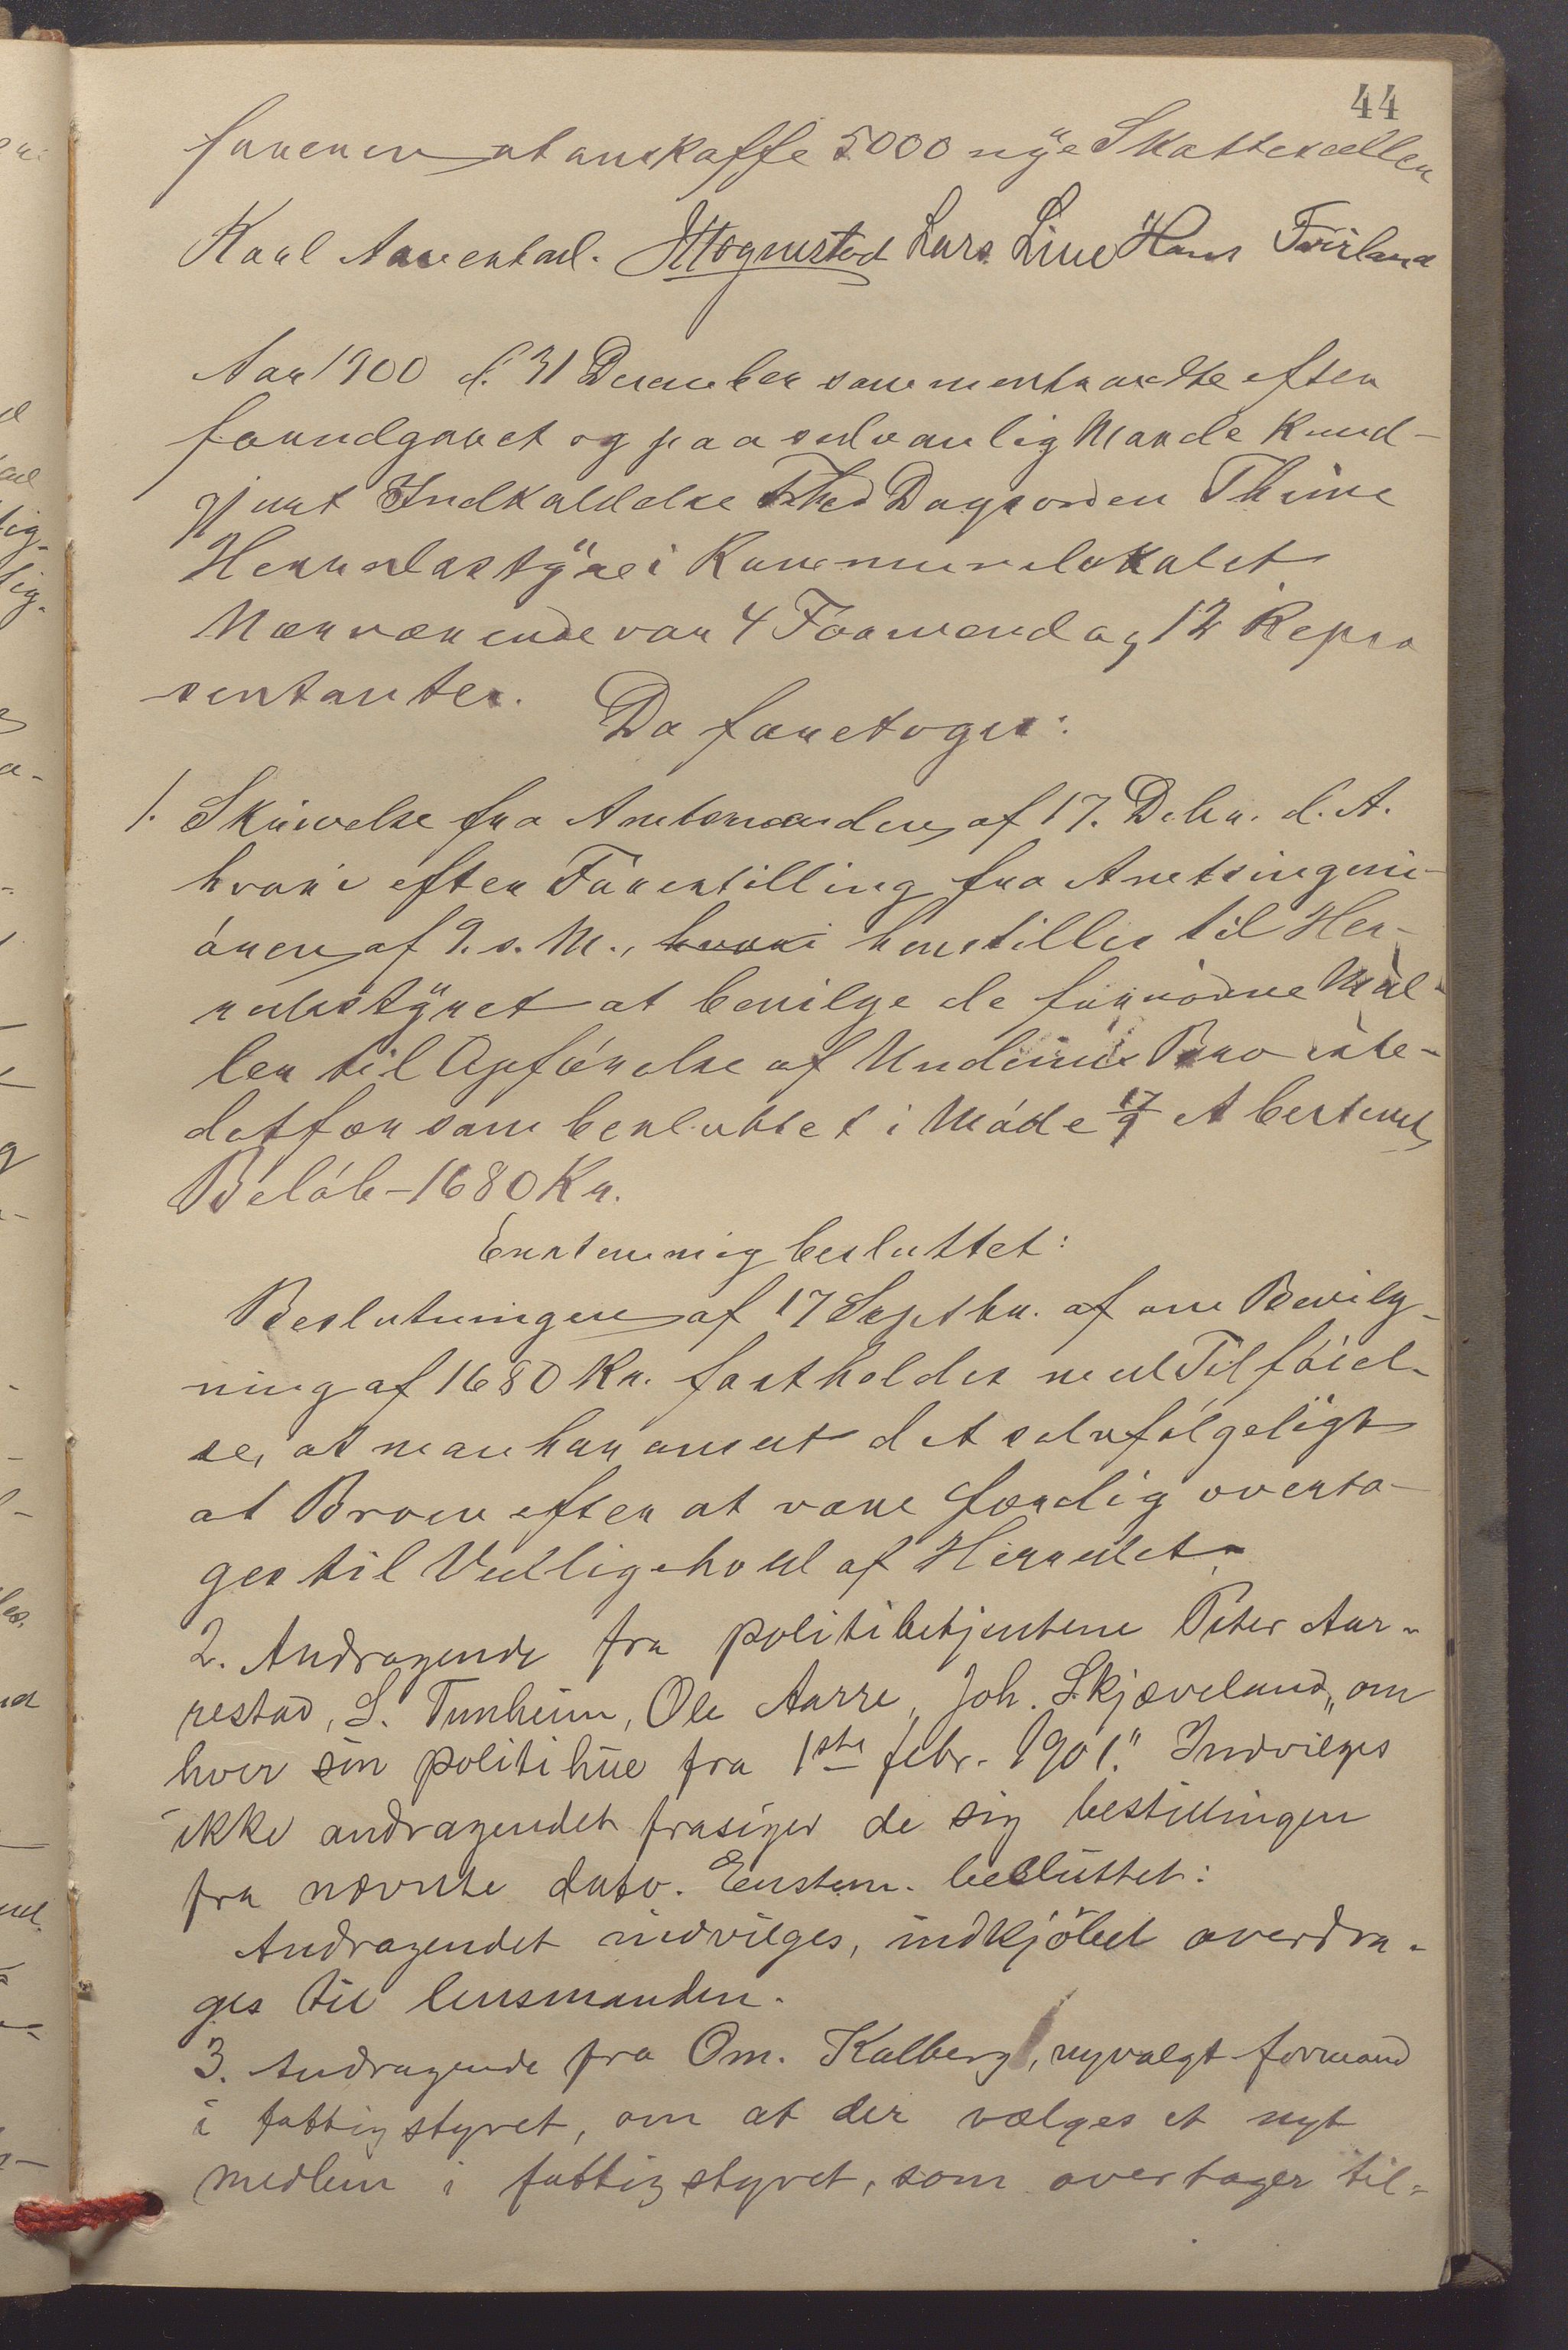 44
føreren at anskaffe 5000 nye Skattesedler
Karl Aarrestad. Lars Line Hans
Aar 1900 d. 31 December sammentraadte efter
forudgaaet og paa sedvanlig Maade kund-
gjort Indkaldelse Dagsorden Thime
Herredsstyre i Kommunelokalet
Nærværende var 4 Formænd og 12 Repræ
sentanter.
Da foretoges:
1. Skrivelse fra Amtmanden af 17. Debr. d. A.
hvori efter Forestilling fra Amtsingeni-
øren af 9. s. M., hvori henstilles til Her-
redsstyret at bevilge de fornødne Mid-
ler til Opførelse af Undeim Bro iste-
detfor som besluttet i Møde 17/9 et bestemt
Beløb - 1680 Kr.
Enstemmig besluttet:
Beslutningen af 17 Septbr. af om Bevilg-
ning af 1680 Kr. fastholdes med Tilføiel-
se, at man har anseet det selvfølgeligt
at Broen efter at være færdig overta-
ges til Vedligehold af Herredet.
2. Andragende fra politibetjentene Peter Aar-
restad, S. Tunheim, Ole Aarre, Joh. Skjæveland, "om
hver sin politihue fra 1ste febr. 1901." Indvilges
ikke andragendet frasiger de sig bestillingen
fra nævnte dato. Enstem. besluttet:
Andragendet indvilges, indkjöbet overdra-
ges til lensmanden.
3. Andragende fra Om. Kalberg, nyvalgt formand
i fattigstyret, om at der vælges et nyt
medlem i fattigstyret, som overtager til-